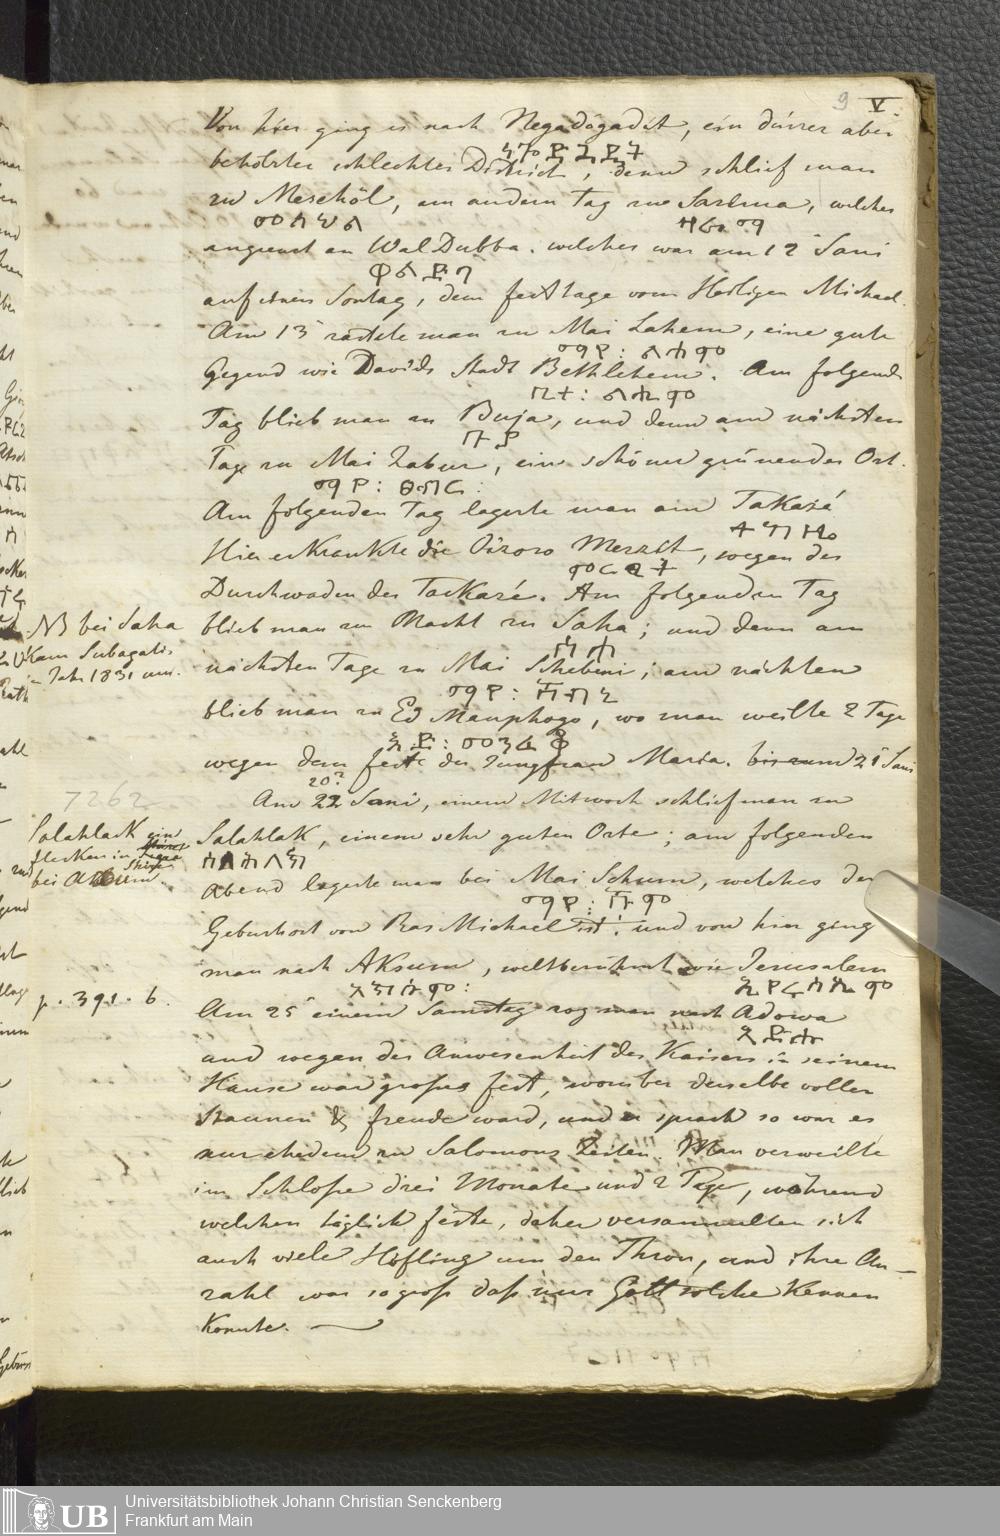 9 V.
Von hier ging es nach Negadögadit, ein dürrer aber
ነጎድጓድት
beholzter schlechter District, dann schlief man
zu Meschöl, am andern Tag zu Sarima, welches
መስዓል ዛሪማ
angrenzt an Wal Dubba. welches war am 12 Sani
ዋልድባ
auf einen Sontag, dem festtage vom Heiligen Michael.
Am 13 rückte man zu Mai Lahem, eine gute
ማይ፡ ላሕም
Gegend wie Davids Stadt Bethlehem. Am folgend
ቤተ፡ ልሔም
Tag blieb man zu Buja, und denn am nächsten
ቡያ
Tage zu Mai Zabur, ein schöner grünender Ort.
ማይ፡ ፀብር፡
Am folgenden Tag lagerte man am Takazé
ተከዜ
Hier erkrankte die Oizoro Merzit, wegen des
Durchwaden des Tackazé. Am folgenden Tag
blieb man zu Nacht zu Saha; und denn am
ሰሐ
nächsten Tage zu Mai Schebeni; am nächten
ማይ፡ ሽብኒ
blieb man zu Ed Manphogo, wo man weilte 2 Tage
wegen dem feste der Jungfrau Maria. bis zum 21 Sani
20?
Am 22 Sani, einem Mitwoch schlief man zu
Salahlak, einem sehr guten Orte; am folgenden
Abend lagerte man bei Mai Schum, welches der
ማይ፡ ሹም
Geburtsort von Ras Michael ist: und von hier ging
man nach Aksum, weltberühmt wie Jerusalem
አክሱም፡ ኢየሩሳሌም
Am 25 einem Samstag zog man nach Adowa
አድዋ
und wegen der Anwesenheit des Kaisers in seinem
Hause war großes fest, worüber derselbe voller
Staunen & freude ward, und er sprach so war es
nur ehedem zu Salomons Zeiten. Man verweilte
im Schloße drei Monate und 2 Tage, während
welchen täglich feste, daher versammelten sich
auch viele Höfling um den Thron, und ihre An-
zahl war so groß daß nur Gott solche kennen
konnte.
NB bei Saha
kam Subagadis
im Jahr 1831 um.
7262
Salahlak ein
flecken in
Shire
bei Axum.
p. 391. b.
UB
Universitätsbibliothek Johann Christian Senckenberg
Frankfurt am Main